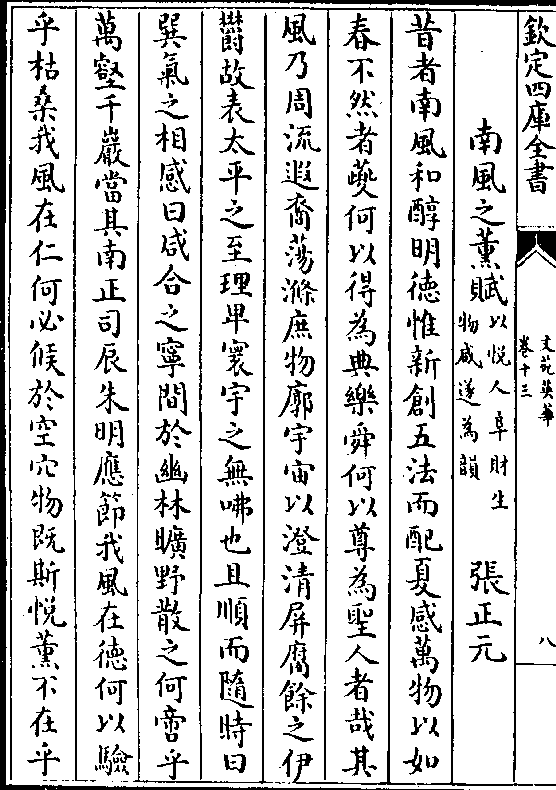 欽定四庫全書
文苑英華
卷十三
八
南風之薰賦以悦人阜財生
物咸遂為韻
張正元
昔者南風和醇明德惟新創五法而配夏感萬物以如
春不然者夔何以得為典樂舜何以尊為聖人者哉其
風乃周流遐裔蕩滌庶物廓宇宙以澄清屏腐餘之伊
欝故表太平之至理畢寰宇之無咈也且順而隨時曰
巽氣之相感曰咸合之寧間於幽林曠野散之何啻乎
萬壑千巖當其南正司辰朱明應節我風在徳何以驗
乎枯桑我風在仁何必候於空穴物既斯悦薫不在乎